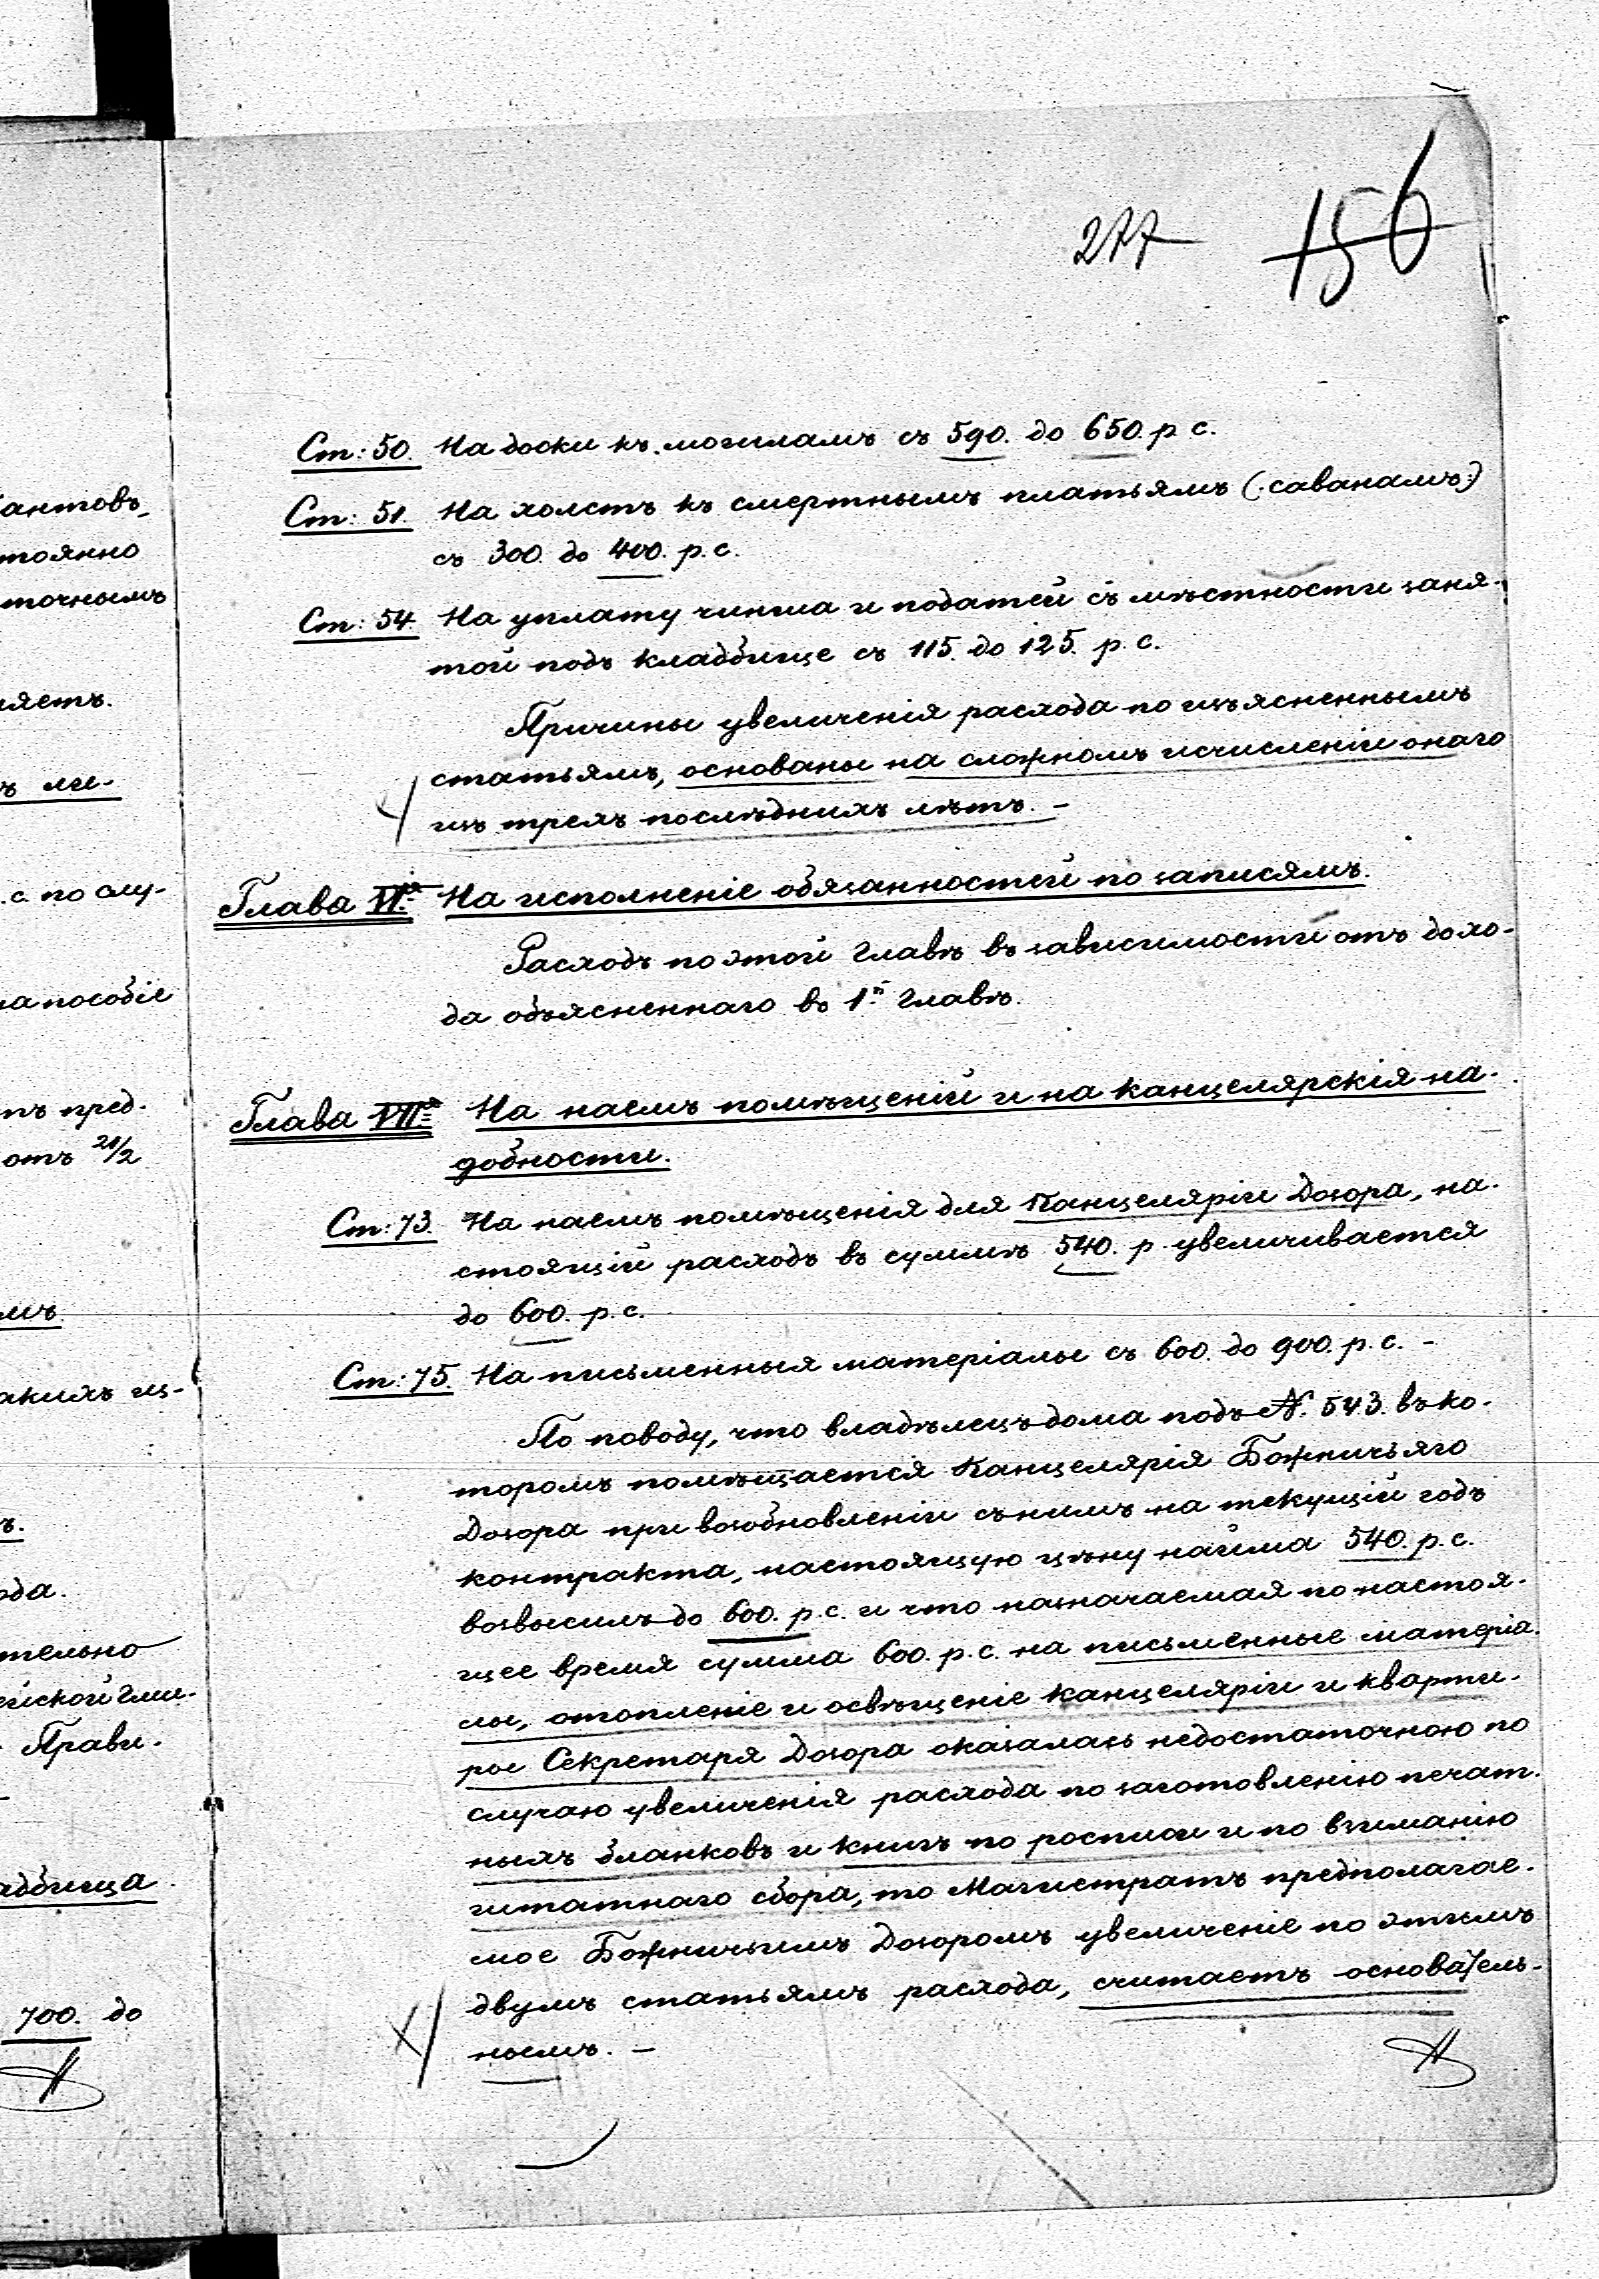 277 156
Ст: 50. На доски къ могиламъ съ 590. до 650. р. с.
Ст: 51. На холстъ къ смертнымъ платьямъ (:саванамъ:)
съ 300. до 400. р. с.
Ст: 54. На уплату чинша и податей съ мѣстности заня-
той подъ кладбище съ 115. до 125. р. с.
Причины увеличенія расхода по изъясненнымъ
статьямъ, основаны на сложномъ исчисленіи онаго
изъ трехъ послѣднихъ лѣтъ. –
Глава VI.я На исполненіе обязанностей по записямъ.
Расходъ по этой главѣ въ зависимости отъ дохо-
да объясненнаго въ 1.й главѣ.
Глава VII.я На наемъ помѣщеній и на канцелярскія на-
добности.
Ст: 73. На наемъ помѣщенія для Канцеляріи Дозора, на-
стоящій расходъ въ суммѣ 540. р. увеличивается
до 600. р. с.
Ст: 75. На письменныя матеріалы съ 600. до 900. р. с. –
По поводу, что владѣлецъ дома подъ N. 543. въ ко-
торомъ помѣщается Канцелярія Божничьяго
Дозора при возобновленіи съ нимъ на текущій годъ
контракта, настоящую цѣну найма 540. р. с.
возвысилъ до 600. р. с. и что назначаемая по настоя-
щее время сумма 600. р. с. на письменные матеріа-
лы, отопленіе и освѣщеніе канцеляріи и кварти-
ры Секретаря Дозора оказалась недостаточною по
случаю увеличенія расхода по заготовленію печат-
ныхъ бланковъ и книгъ по росписи и по взиманію
штатнаго сбора, то Магистратъ предполагае-
мое Божничьимъ Дозоромъ увеличеніе по этимъ
двумъ статьямъ расхода, считаетъ основатель-
нымъ. –
антовъ,
тоянно
точнымъ
яетъ.
ъ ли-
. с. по слу-
на пособіе
тъ пред-
отъ 21/2
мъ
акихъ из-
ъ.
ода.
тельно
ейской гми-
Прави-
адбища
700. до